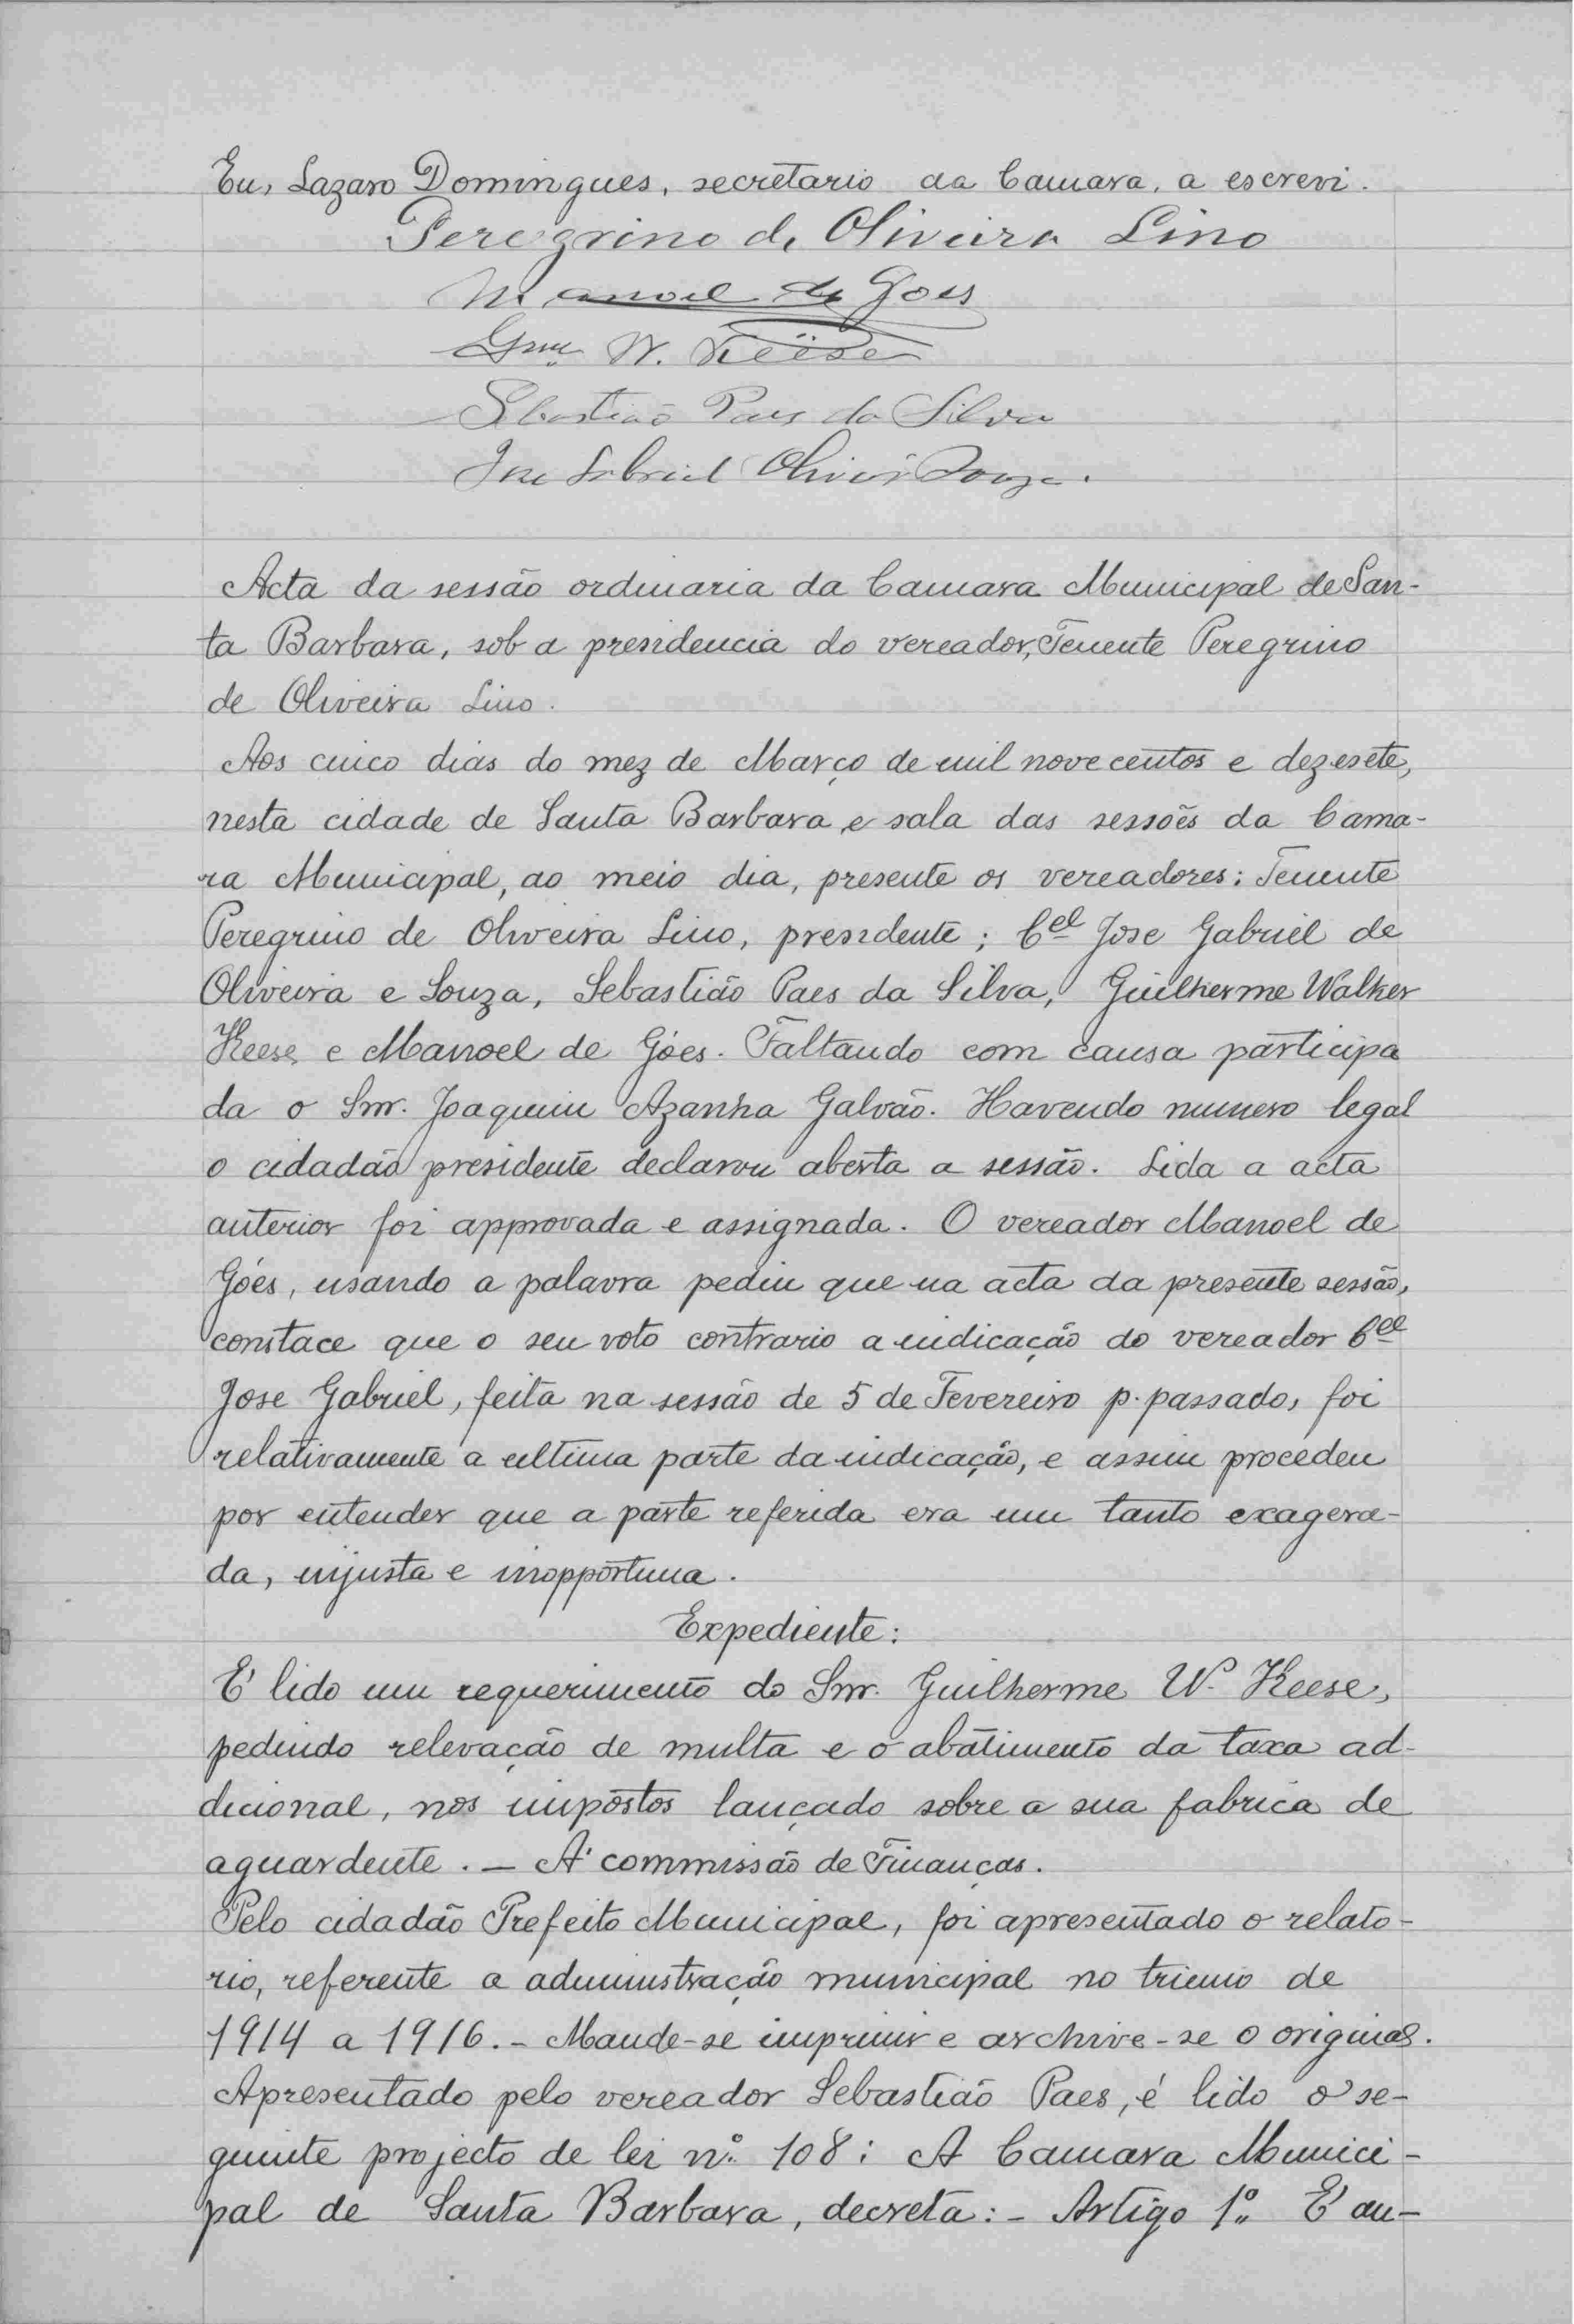 Eu, Lazaro Domingues, secretario da Camara, a escrevi.
Peregrino de Oliveira Lino
Manoel de Goes
Gme W. Keese
Sebastião Paes da Silva
Jose Gabriel Oliveira Souza.
Acta da sessão ordinaria da Camara Municipal de San-
ta Barbara, sob a presidencia do vereador, Tenente Peregrino
de Oliveira Lino.
Aos cinco dias do mez de Março de mil novecentos e dezesete,
nesta cidade de Santa Barbara e sala das sessões da Cama-
ra Municipal, ao meio dia, presente os vereadores: Tenente
Peregrino de Oliveira Lino, presidente; Cel Jose Gabriel de
Oliveira e Souza, Sebastião Paes da Silva, Guilherme Walker
Keese e Manoel de Góes. Faltando com causa participa
da o Snr. Joaquim Azanha Galvão. Havendo numero legal
o cidadão presidente declarou aberta a sessão. Lida a acta
anterior foi approvada e assignada. O vereador Manoel de
Góes, usando a palavra pediu que na acta da presente sessão,
constace que o seu voto contrario a indicação do vereador Cel
Jose Gabriel, feita na sessão de 5 de Fevereiro p. passado, foi
relativamente a ultima parte da indicação, e assim procedeu
por entender que a parte referida era um tanto exagera-
da, injusta e inopportuna.
Expediente:
E' lido um requerimento do Snr. Guilherme W. Keese,
pedindo relevação de multa e o abatimento da taxa ad-
dicional, nos impostos lançado sobre a sua fabrica de
aguardente. - A' commissão de Finanças.
Pelo cidadão Prefeito Municipal, foi apresentado o relato-
rio, referente a administração municipal no trienio de
1914 a 1916. - Mande-se imprimir e archive-se o original.
Apresentado pelo vereador Sebastião Paes, é lido o se-
guinte projecto de lei nº 108: A Camara Munici-
pal de Santa Barbara, decreta: - Artigo 1º E' au-